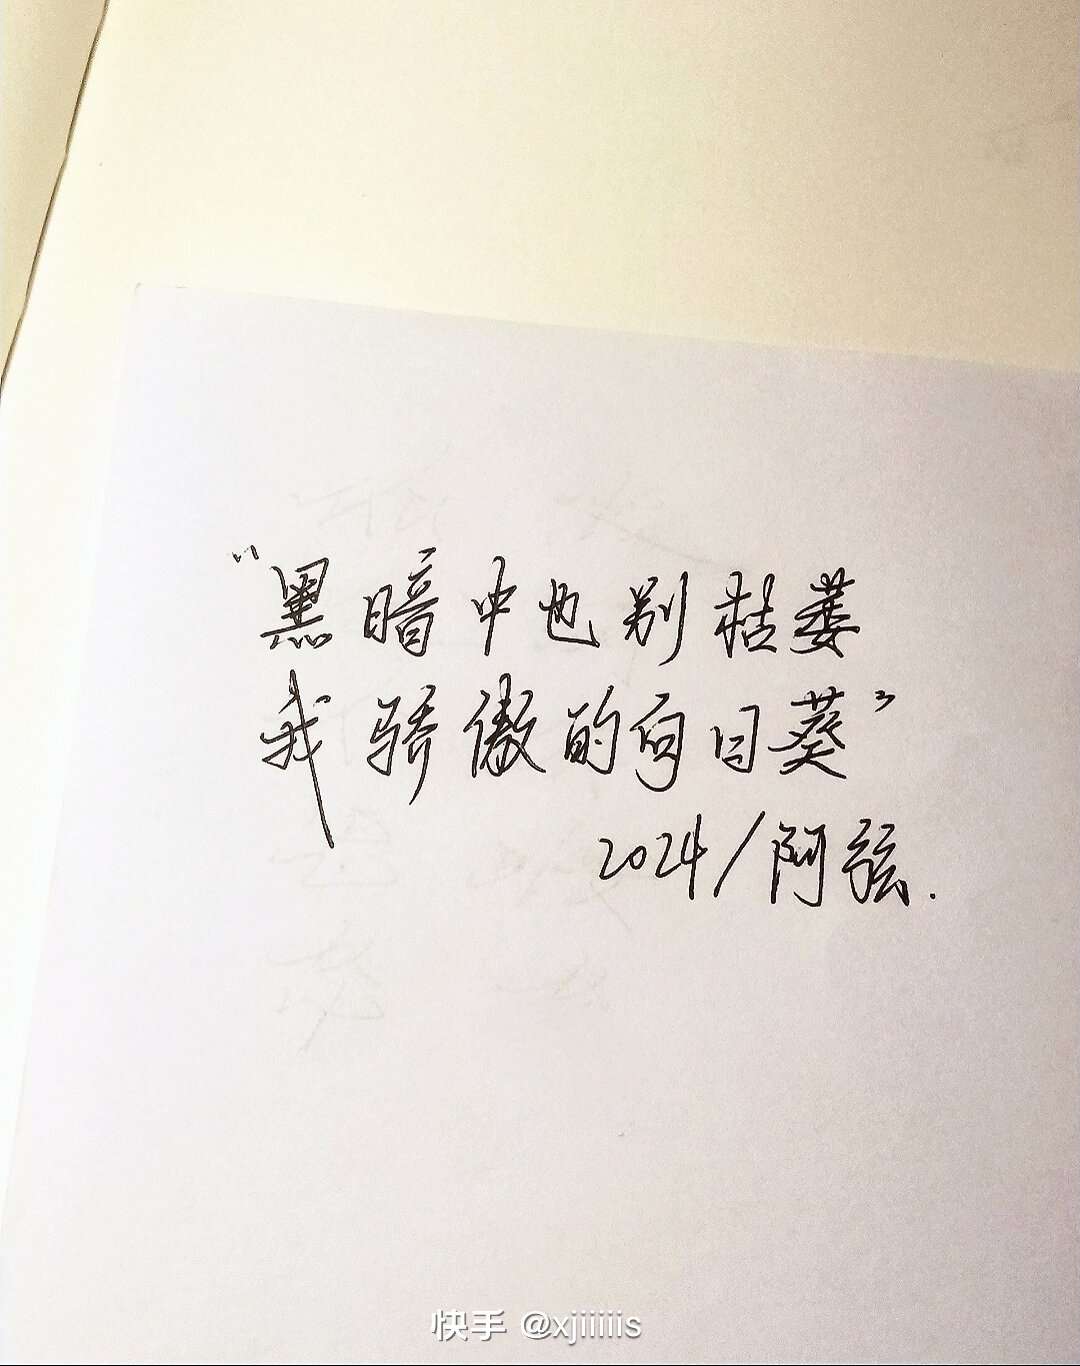 "黑暗中也别枯萎
我骄傲的向日葵"
2024/阿弦.
快手 @xjiiiiis